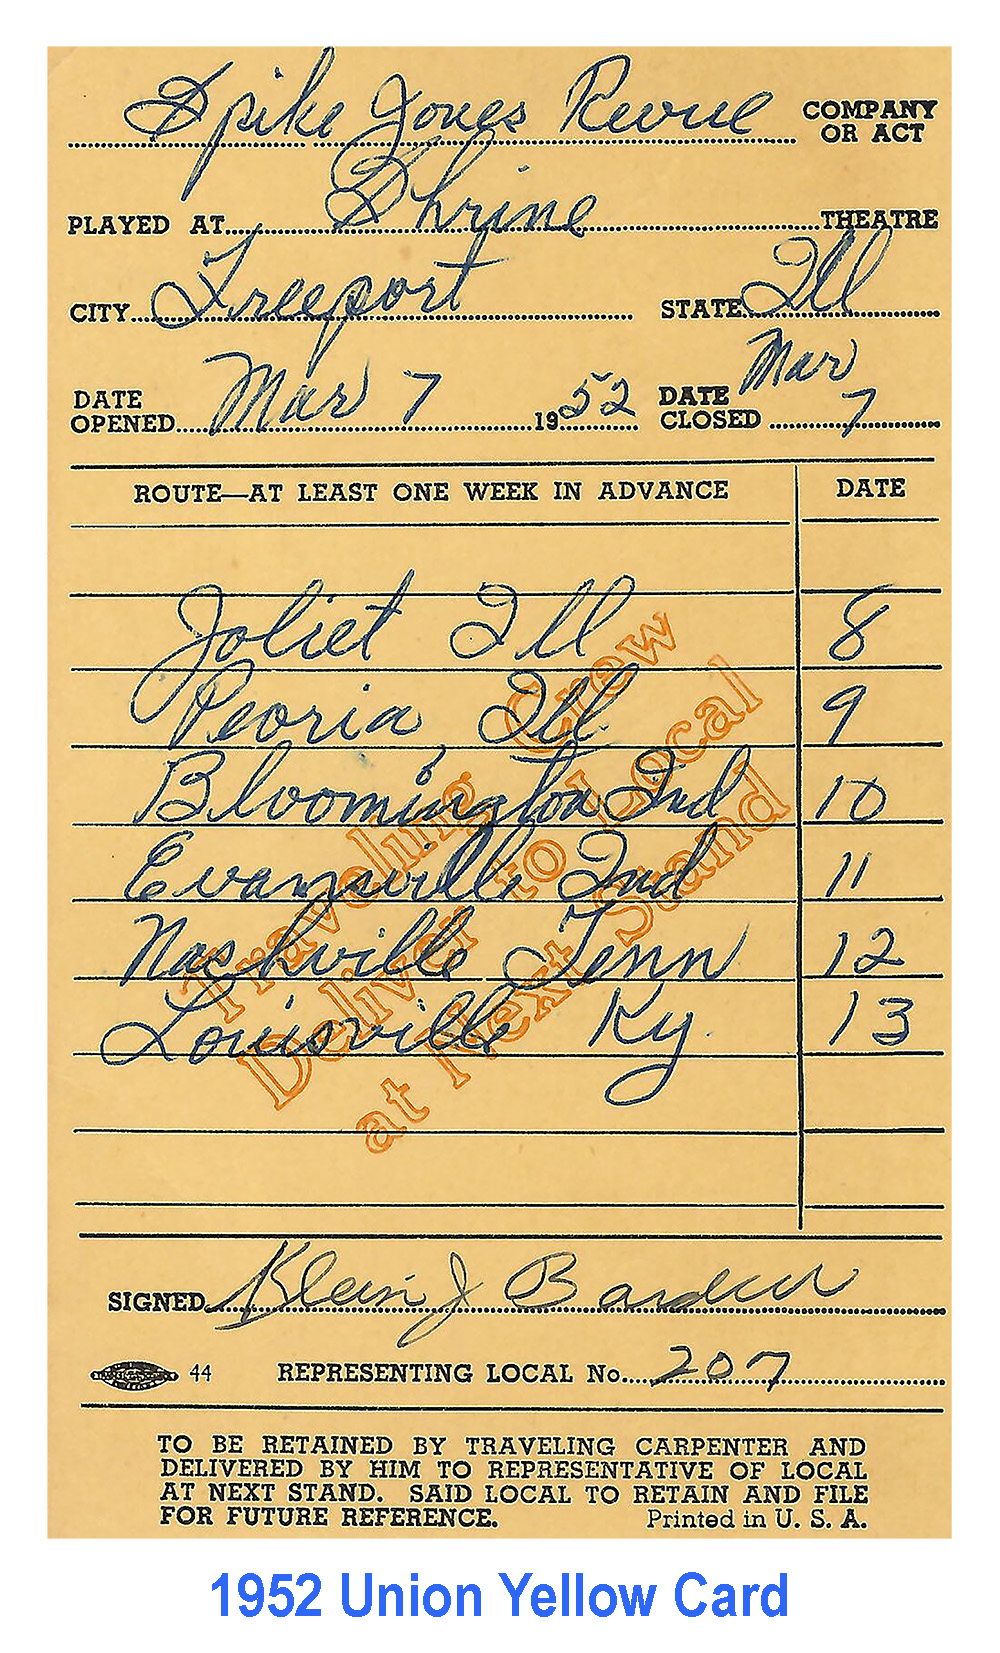 Spike Jones Revue COMPANY OR ACT
PLAYED AT Shrine THEATRE
CITY Freeport STATE Ill
DATE OPENED Mar 7 1952 DATE CLOSED Mar 7
ROUTE—AT LEAST ONE WEEK IN ADVANCE DATE
Joliet Ill 8
Peoria, Ill. 9
Bloomington Ind 10
Evansville Ind 11
Nashville Tenn 12
Louisville Ky. 13
Traveling Crew
Deliver to Local
at Next Stand
SIGNED J
44 REPRESENTING LOCAL No. 207
TO BE RETAINED BY TRAVELING CARPENTER AND
DELIVERED BY HIM TO REPRESENTATIVE OF LOCAL
AT NEXT STAND. SAID LOCAL TO RETAIN AND FILE
FOR FUTURE REFERENCE. Printed in U. S. A.
1952 Union Yellow Card